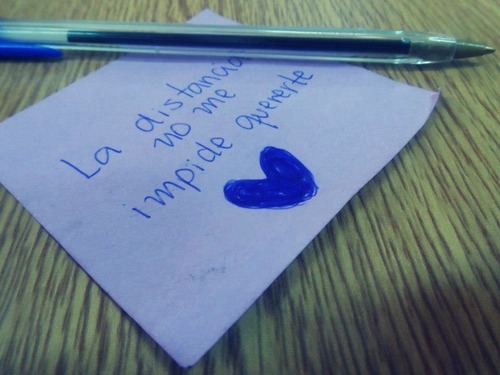 La distancia
no me
impide quererte